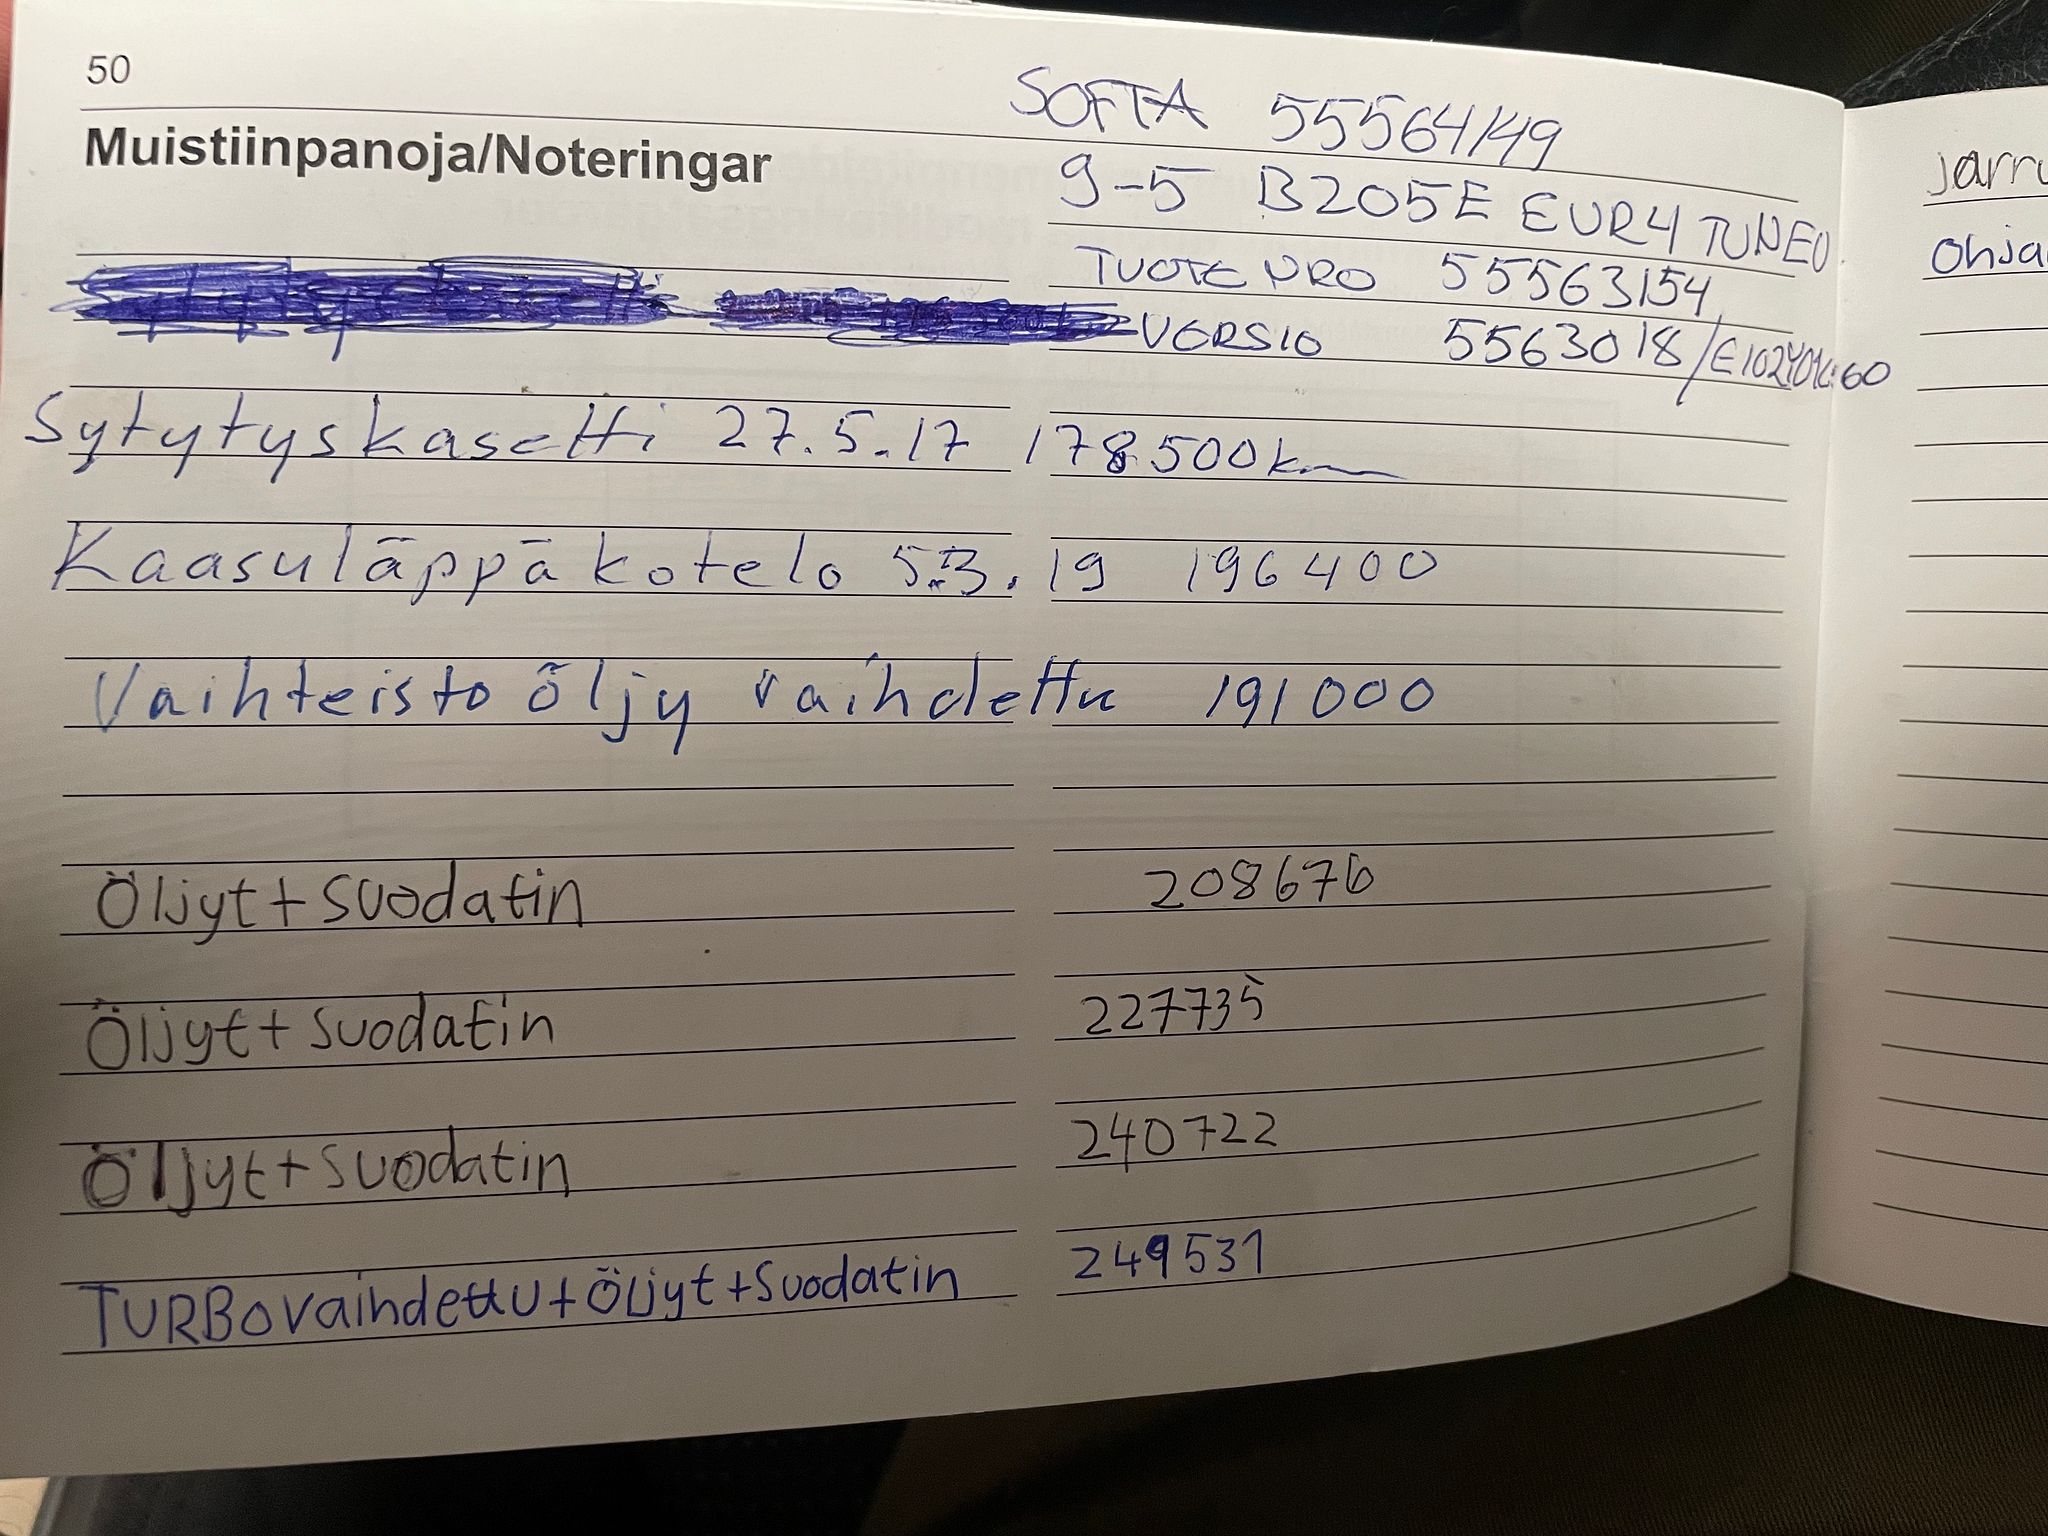 50
SOFTA 55564149
Muistiinpanoja/Noteringar
9-5 B205E EUR4 TUNED
TUOTE NRO 55563154
VERSIO 5563018/
Sytytyskasetti 27.5.17 178500km
Kaasuläppä kotelo 5.3.19 196400
Vaihteisto öljy vaihdettu 191000
Öljyt+suodatin 208676
Öljyt+suodatin 227735
Öljyt+suodatin 240722
TURBO vaihdettu+Öljyt+Suodatin 249531
jarru
Ohja